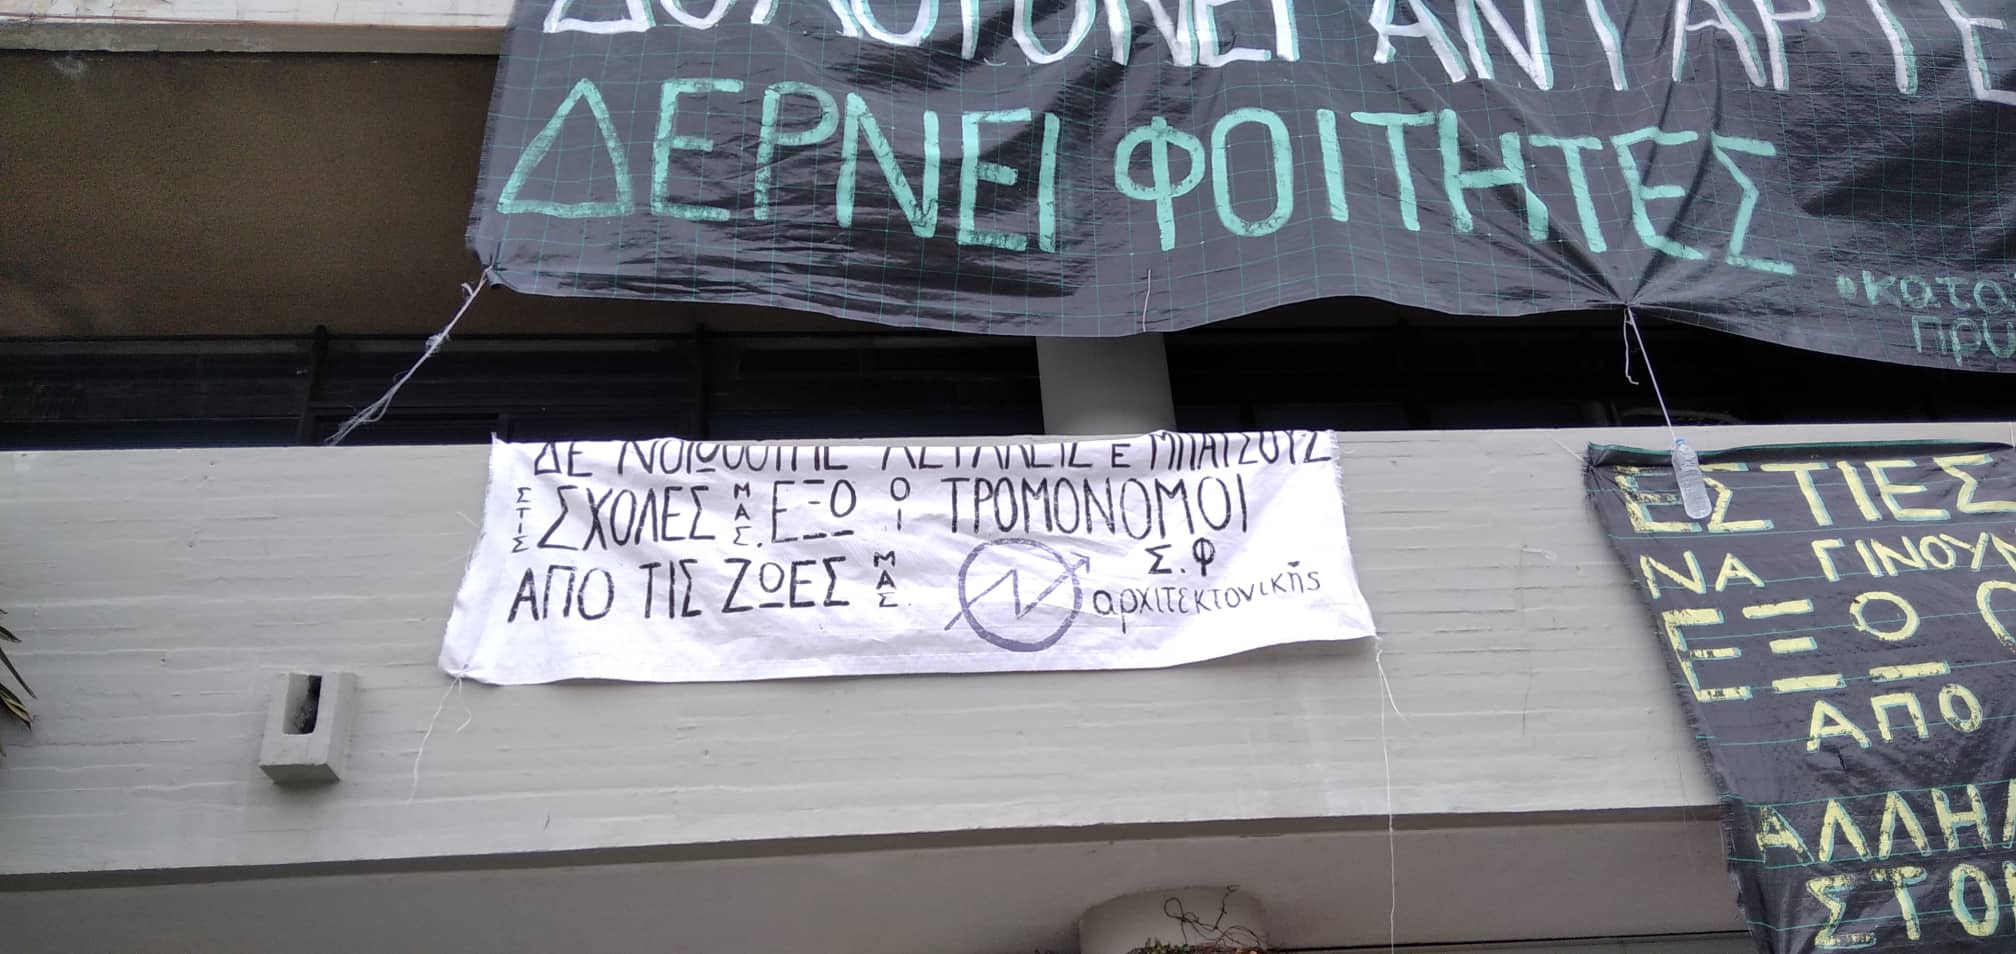 ΔΟΛΟΦΟΝΕΙ ΑΝΤΑΡΤΕ
ΔΕΡΝΕΙ ΦΟΙΤΗΤΕΣ
ΔΕ ΝΟΙΩΘΟΥΜΕ ΑΣΦΑΛΕΙΣ Ε ΜΠΑΤΣΟΥΣ
ΣΤΙΣ ΣΧΟΛΕΣ ΜΑΣ. ΕΞΩ ΟΙ ΤΡΟΜΟΝΟΜΟΙ
ΑΠΟ ΤΙΣ ΖΩΕΣ ΜΑΣ.
Σ.Φ
αρχιτεκτονικής
ΕΣΤΙΕΣ
ΝΑ ΓΙΝΟΥΝ
ΕΞΩ
ΑΠΟ
ΑΛΛΗΛ
ΣΤΟ